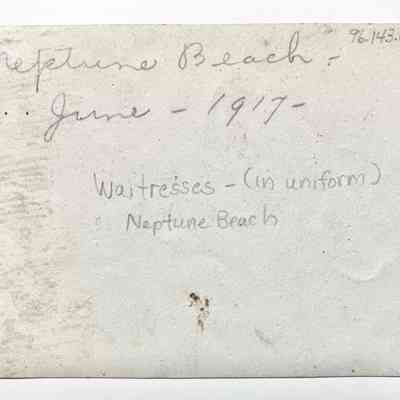 96.143.
Neptune Beach -
.. June - 1917 -
Waitresses - (in uniform)
Neptune Beach